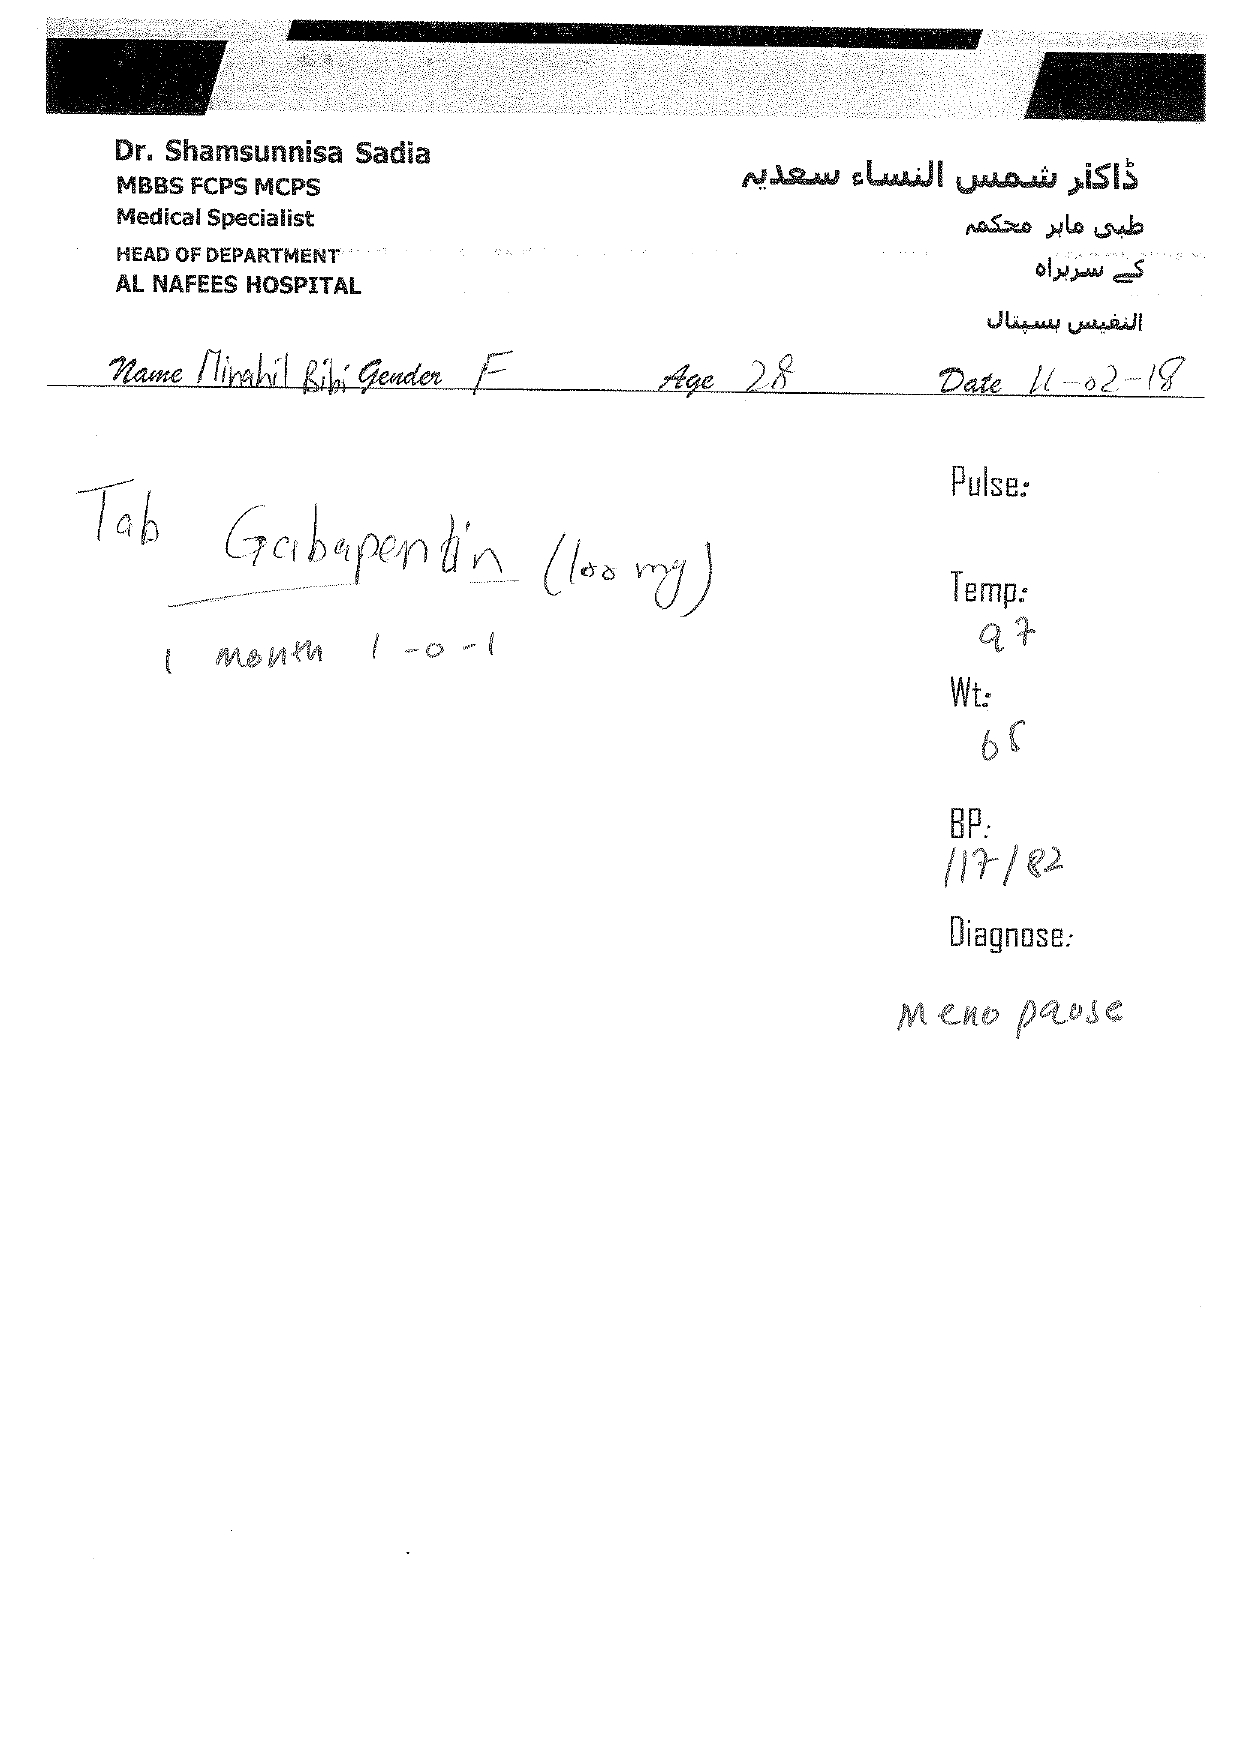 Dr. Shamsunnisa Sadia
MBBS FCPS MCPS
Medical Specialist
HEAD OF DEPARTMENT
AL NAFEES HOSPITAL
ڈاکٹر شمس النساء سعدیہ
طبی ماہر محکمہ
کے سربراہ
النفیس ہسپتال
Name Minahil Bibi Gender F Age 28 Date 11-02-18
Tab Gabapentin (100 mg)
1 month 1-0-1
Pulse:
Temp:
97
Wt:
BP:
117/82
Diagnose:
Menopause